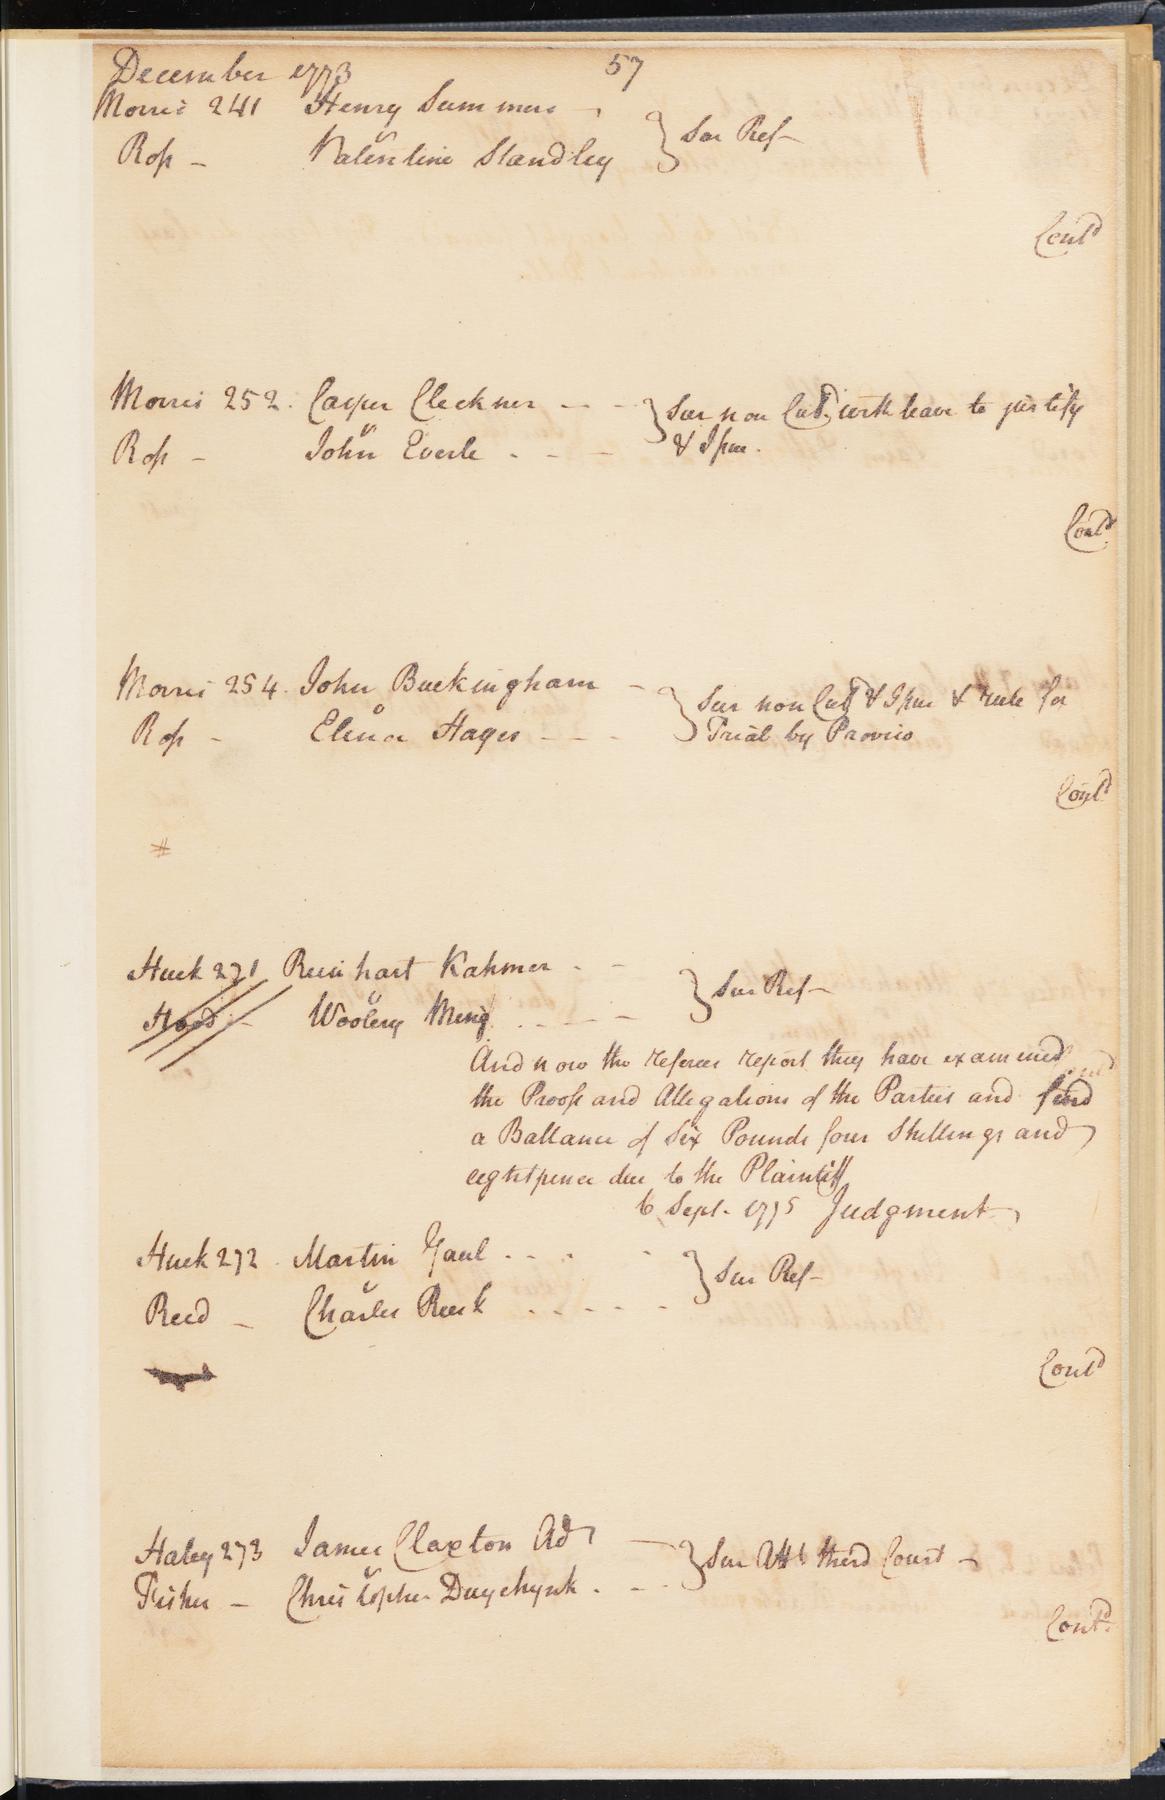 December 1773 57
Morris 241 Henry Summers
Ross - Valentine Standley } Sur Ref -
v
Contd
Morris 252. Casper Cleckner - - - } Sur non Cul. with leave to justify
v
Ross - John Everle - - - & Issue.
Contd
Morris 254. John Buckingham - } Sur non Cul & Issue & rule for
v
Ross - Elenor Hayes - - - Trial by Proviso
Contd
#
Huck 271 Reinhart Kahmer - - } Sur Ref -
v
Hood - Woolery Meng - - - -
And now the referees report they have examined
the Proofs and Allegations of the Parties and find
a Ballance of Six Pounds four Shillings and
eightpence due to the Plaintiff
6 Sept. 1775 Judgment
Huck 272 Martin Gaul - - - - } Sur Ref -
v
Reed - Charles Reerk - - - - -
Contd
Haley 273 James Claxton Adr } Sur Att third Court -
v
Fisher - Christopher Duychynk - - -
Contd